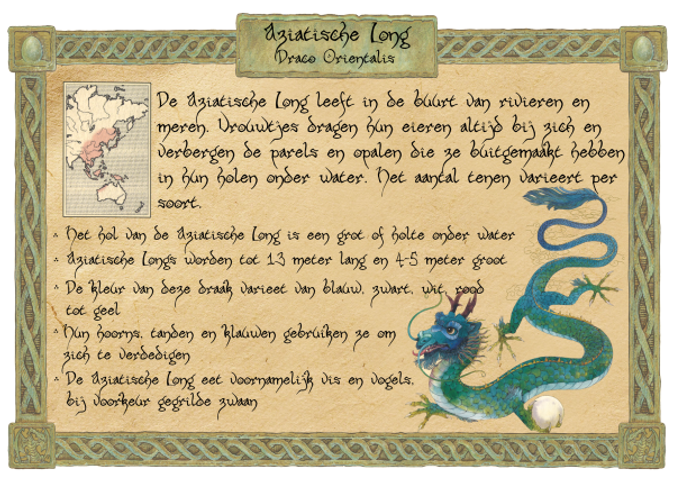 Aziatische Long
Draco Orientalis
De Aziatische Long leeft in de buurt van rivieren en
meren. Vrouwtjes dragen hun eieren altijd bij zich en
verbergen de parels en opalen die ze buitgemaakt hebben
in hun holen onder water. Het aantal tenen varieert per
soort.
∴ Het hol van de Aziatische Long is een grot of holte onder water
∴ Aziatische Longs worden tot 13 meter lang en 4-5 meter groot
∴ De kleur van deze draak varieet van blauw, zwart, wit, rood
tot geel
∴ Hun hoorns, tanden en klauwen gebruiken ze om
zich te verdedigen
∴ De Aziatische Long eet voornamelijk vis en vogels,
bij voorkeur gegrilde zwaan